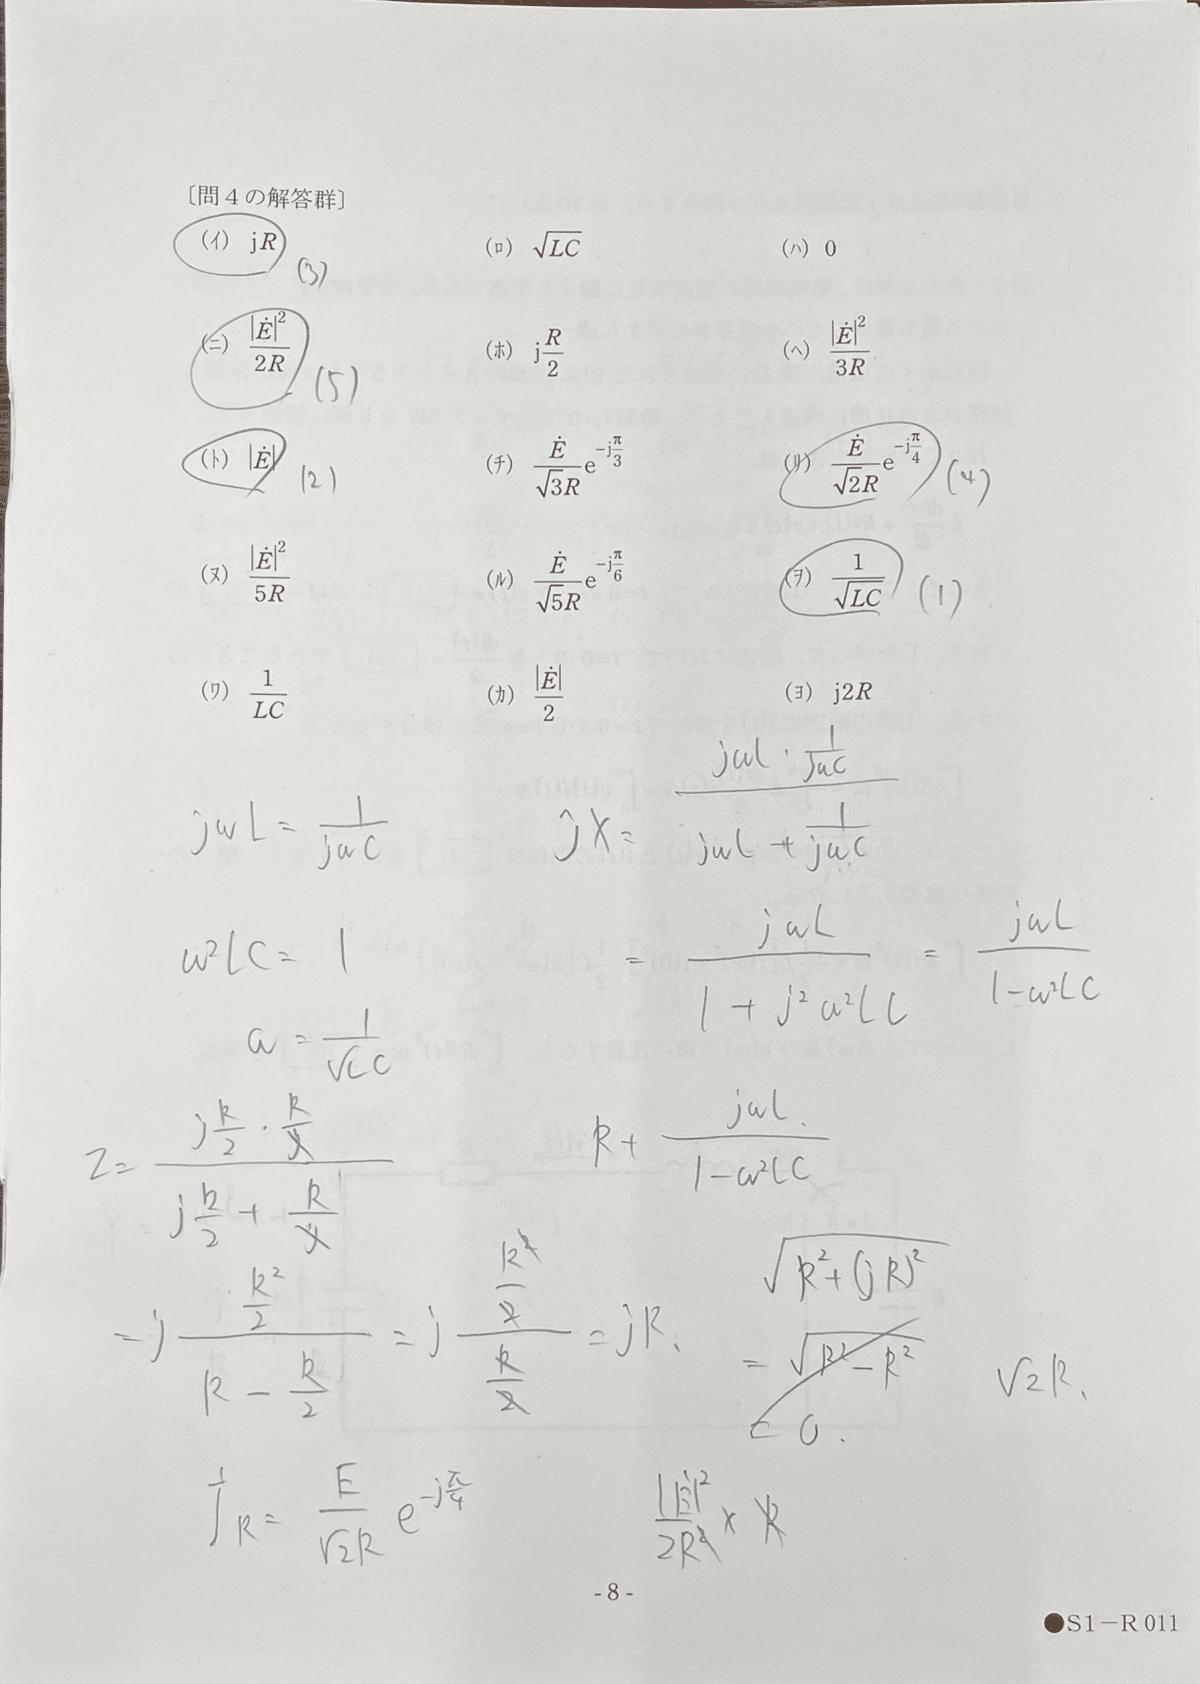 〔問4の解答群〕
(イ) jR (3)
(ロ) √LC
(ハ) 0
(ニ) |Ė|²/2R (5)
(ホ) j R/2
(ヘ) |Ė|²/3R
(ト) |Ė| (2)
(チ) Ė/√3R e^(-jπ/3)
(リ) Ė/√2R e^(-jπ/4) (4)
(ヌ) |Ė|²/5R
(ル) Ė/√5R e^(-jπ/6)
(ヲ) 1/√LC (1)
(ワ) 1/LC
(カ) |Ė|/2
(ヨ) j2R
jωL = 1/jωC
jX = (jωL · 1/jωC)/(jωL + 1/jωC)
ω²LC = 1
= jωL/(1 + j²ω²LC) = jωL/(1-ω²LC)
ω = 1/√LC
Z = (j R/2 · R/j)/(j R/2 + R/j)
R + jωL/(1-ω²LC)
= j (R²/2)/(R - R/2) = j (R²/2)/(R/2) = jR.
√(R² + (jR)²)
= √(R² - R²)
= 0.
√2R.
İR = E/√2R e^(-jπ/4)
|Ė|²/2R² × R
- 8 -
●S1－R 011